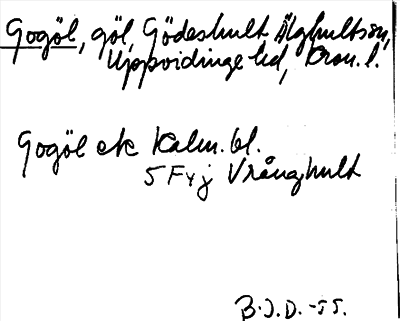 Gogöl, göl, Gödeshult Älghultssn,
Uppvidinge hd, Kron. l.
Gogöl ek Kalm. bl.
5 F v j Vrånghult
B.J.D. -55.